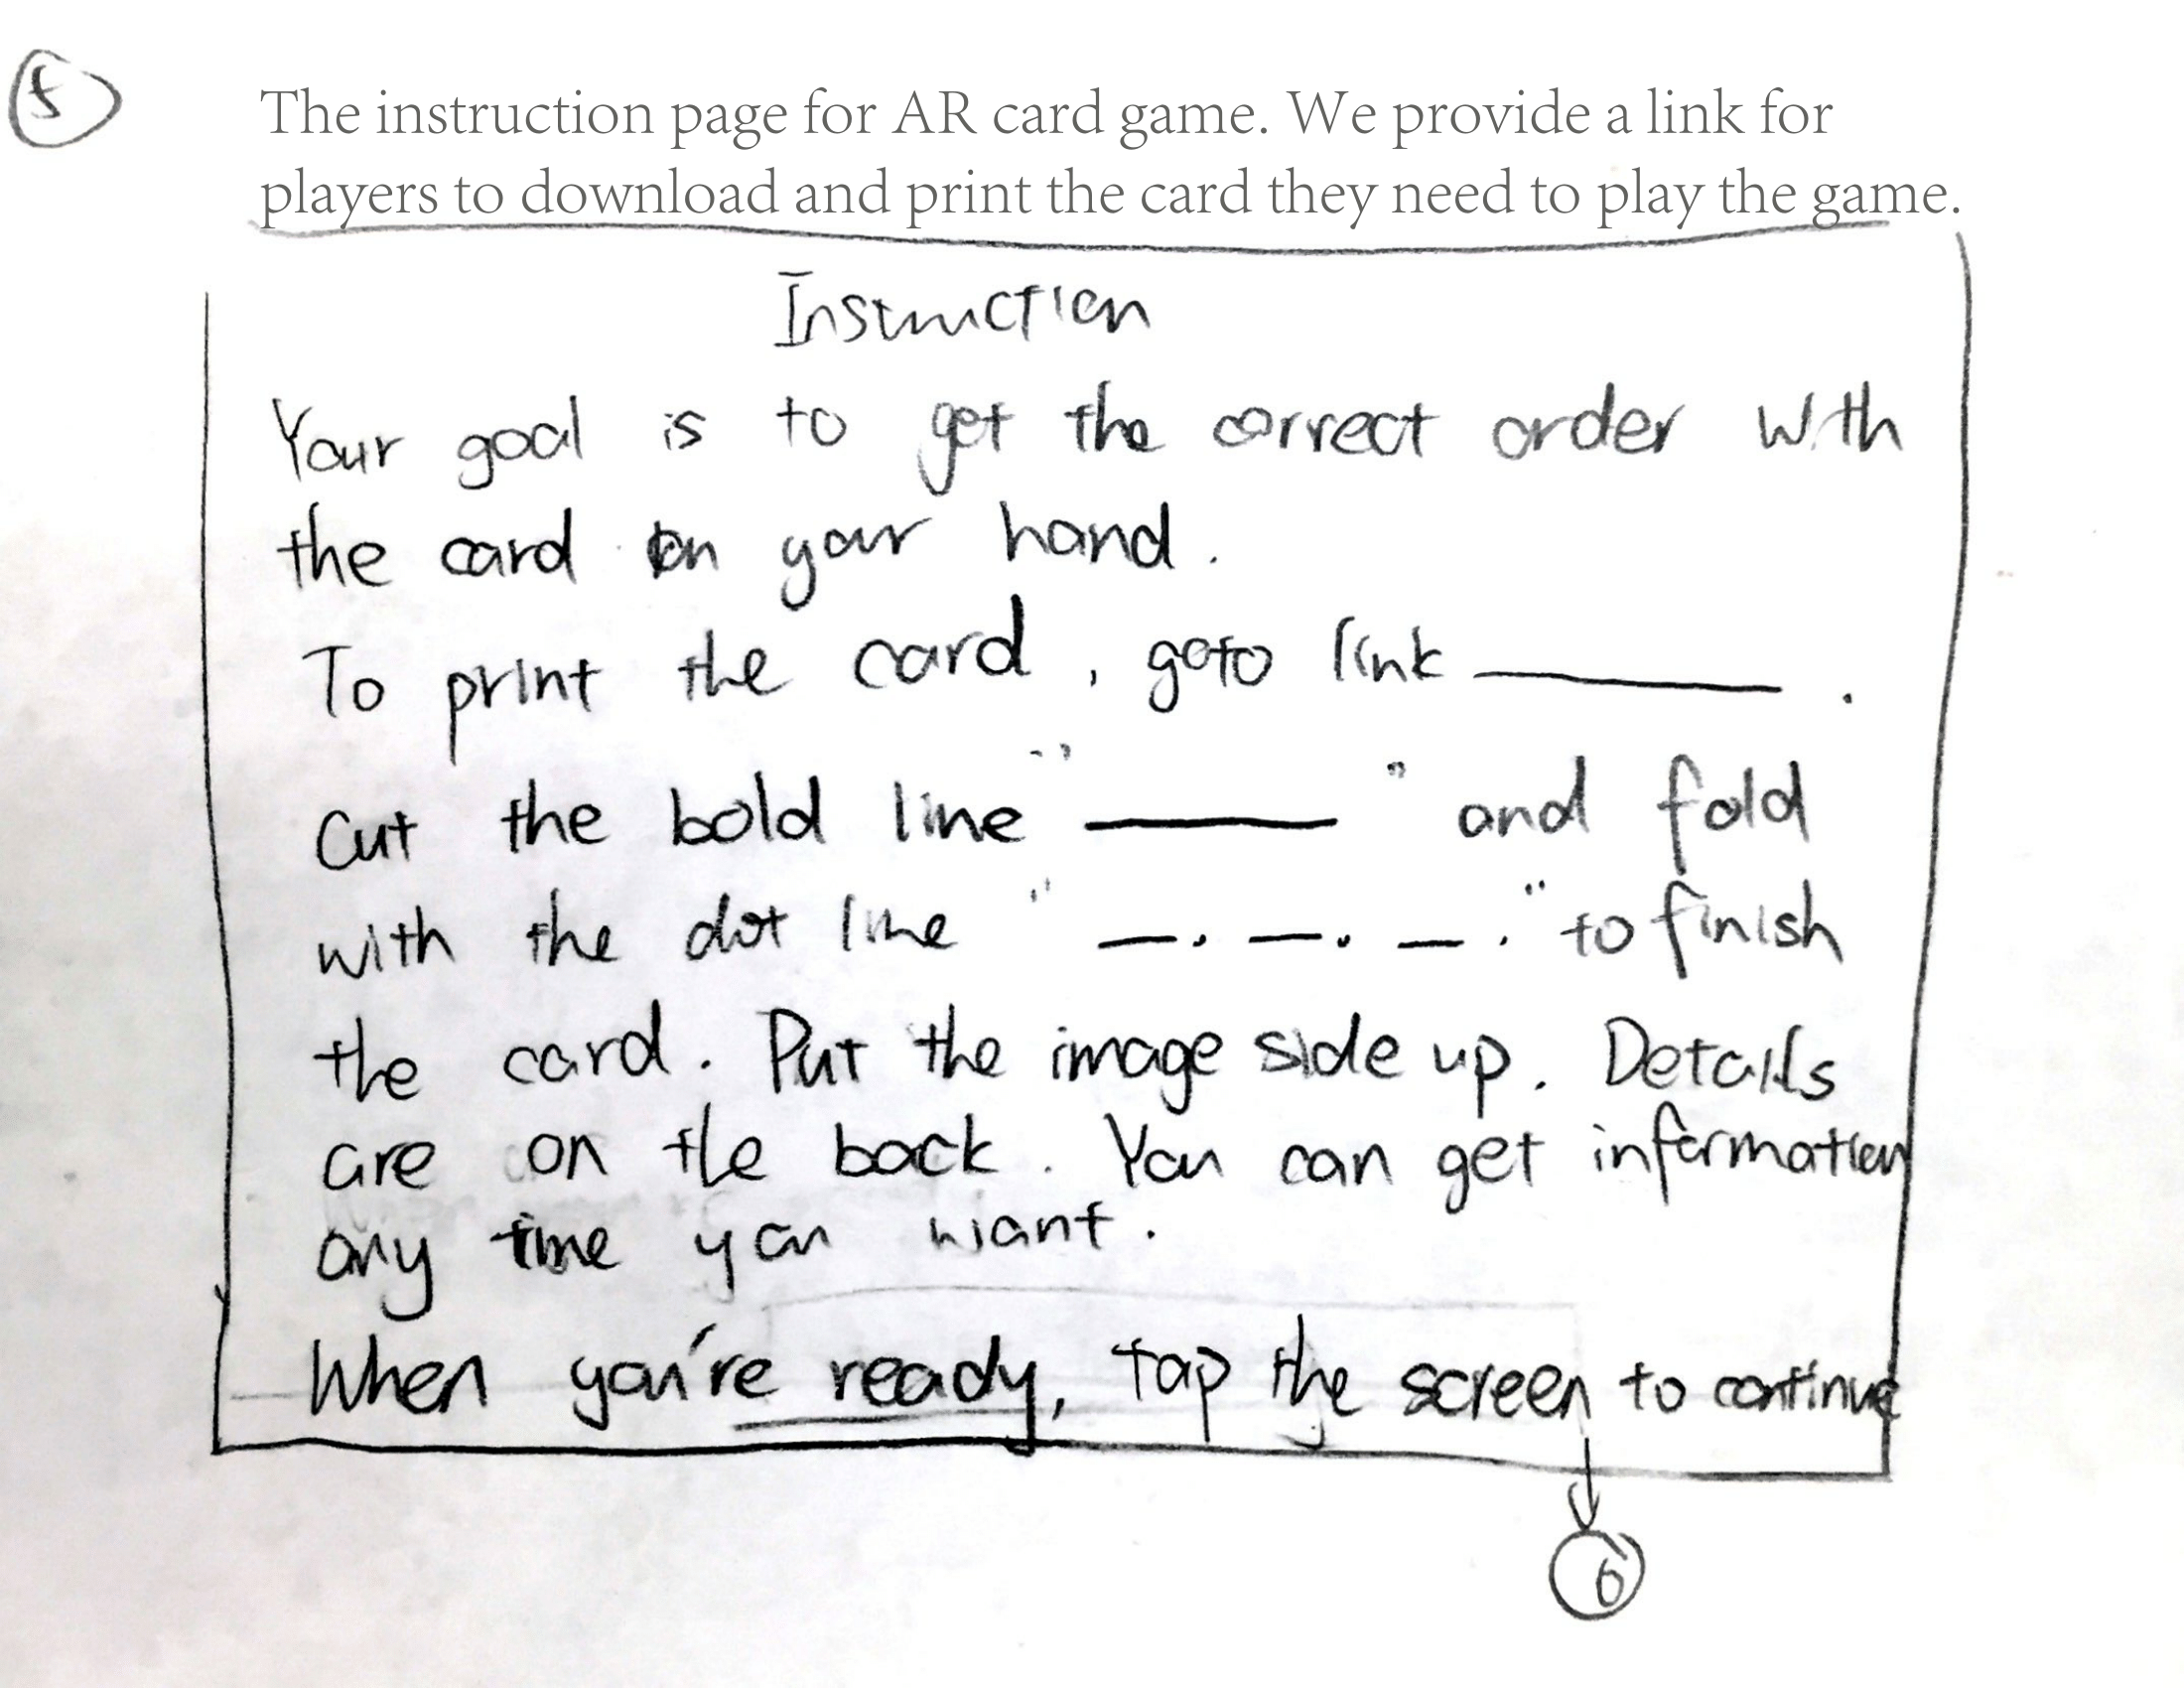 5
The instruction page for AR card game. We provide a link for
players to download and print the card they need to play the game.
Instruction
Your goal is to get the correct order with
the card on your hand.
To print the card, goto link ________.
Cut the bold line "————" and fold
with the dot line "—.—.—." to finish
the card. Put the image side up. Details
are on the back. You can get information
any time you want.
When you're ready, tap the screen to continue
6